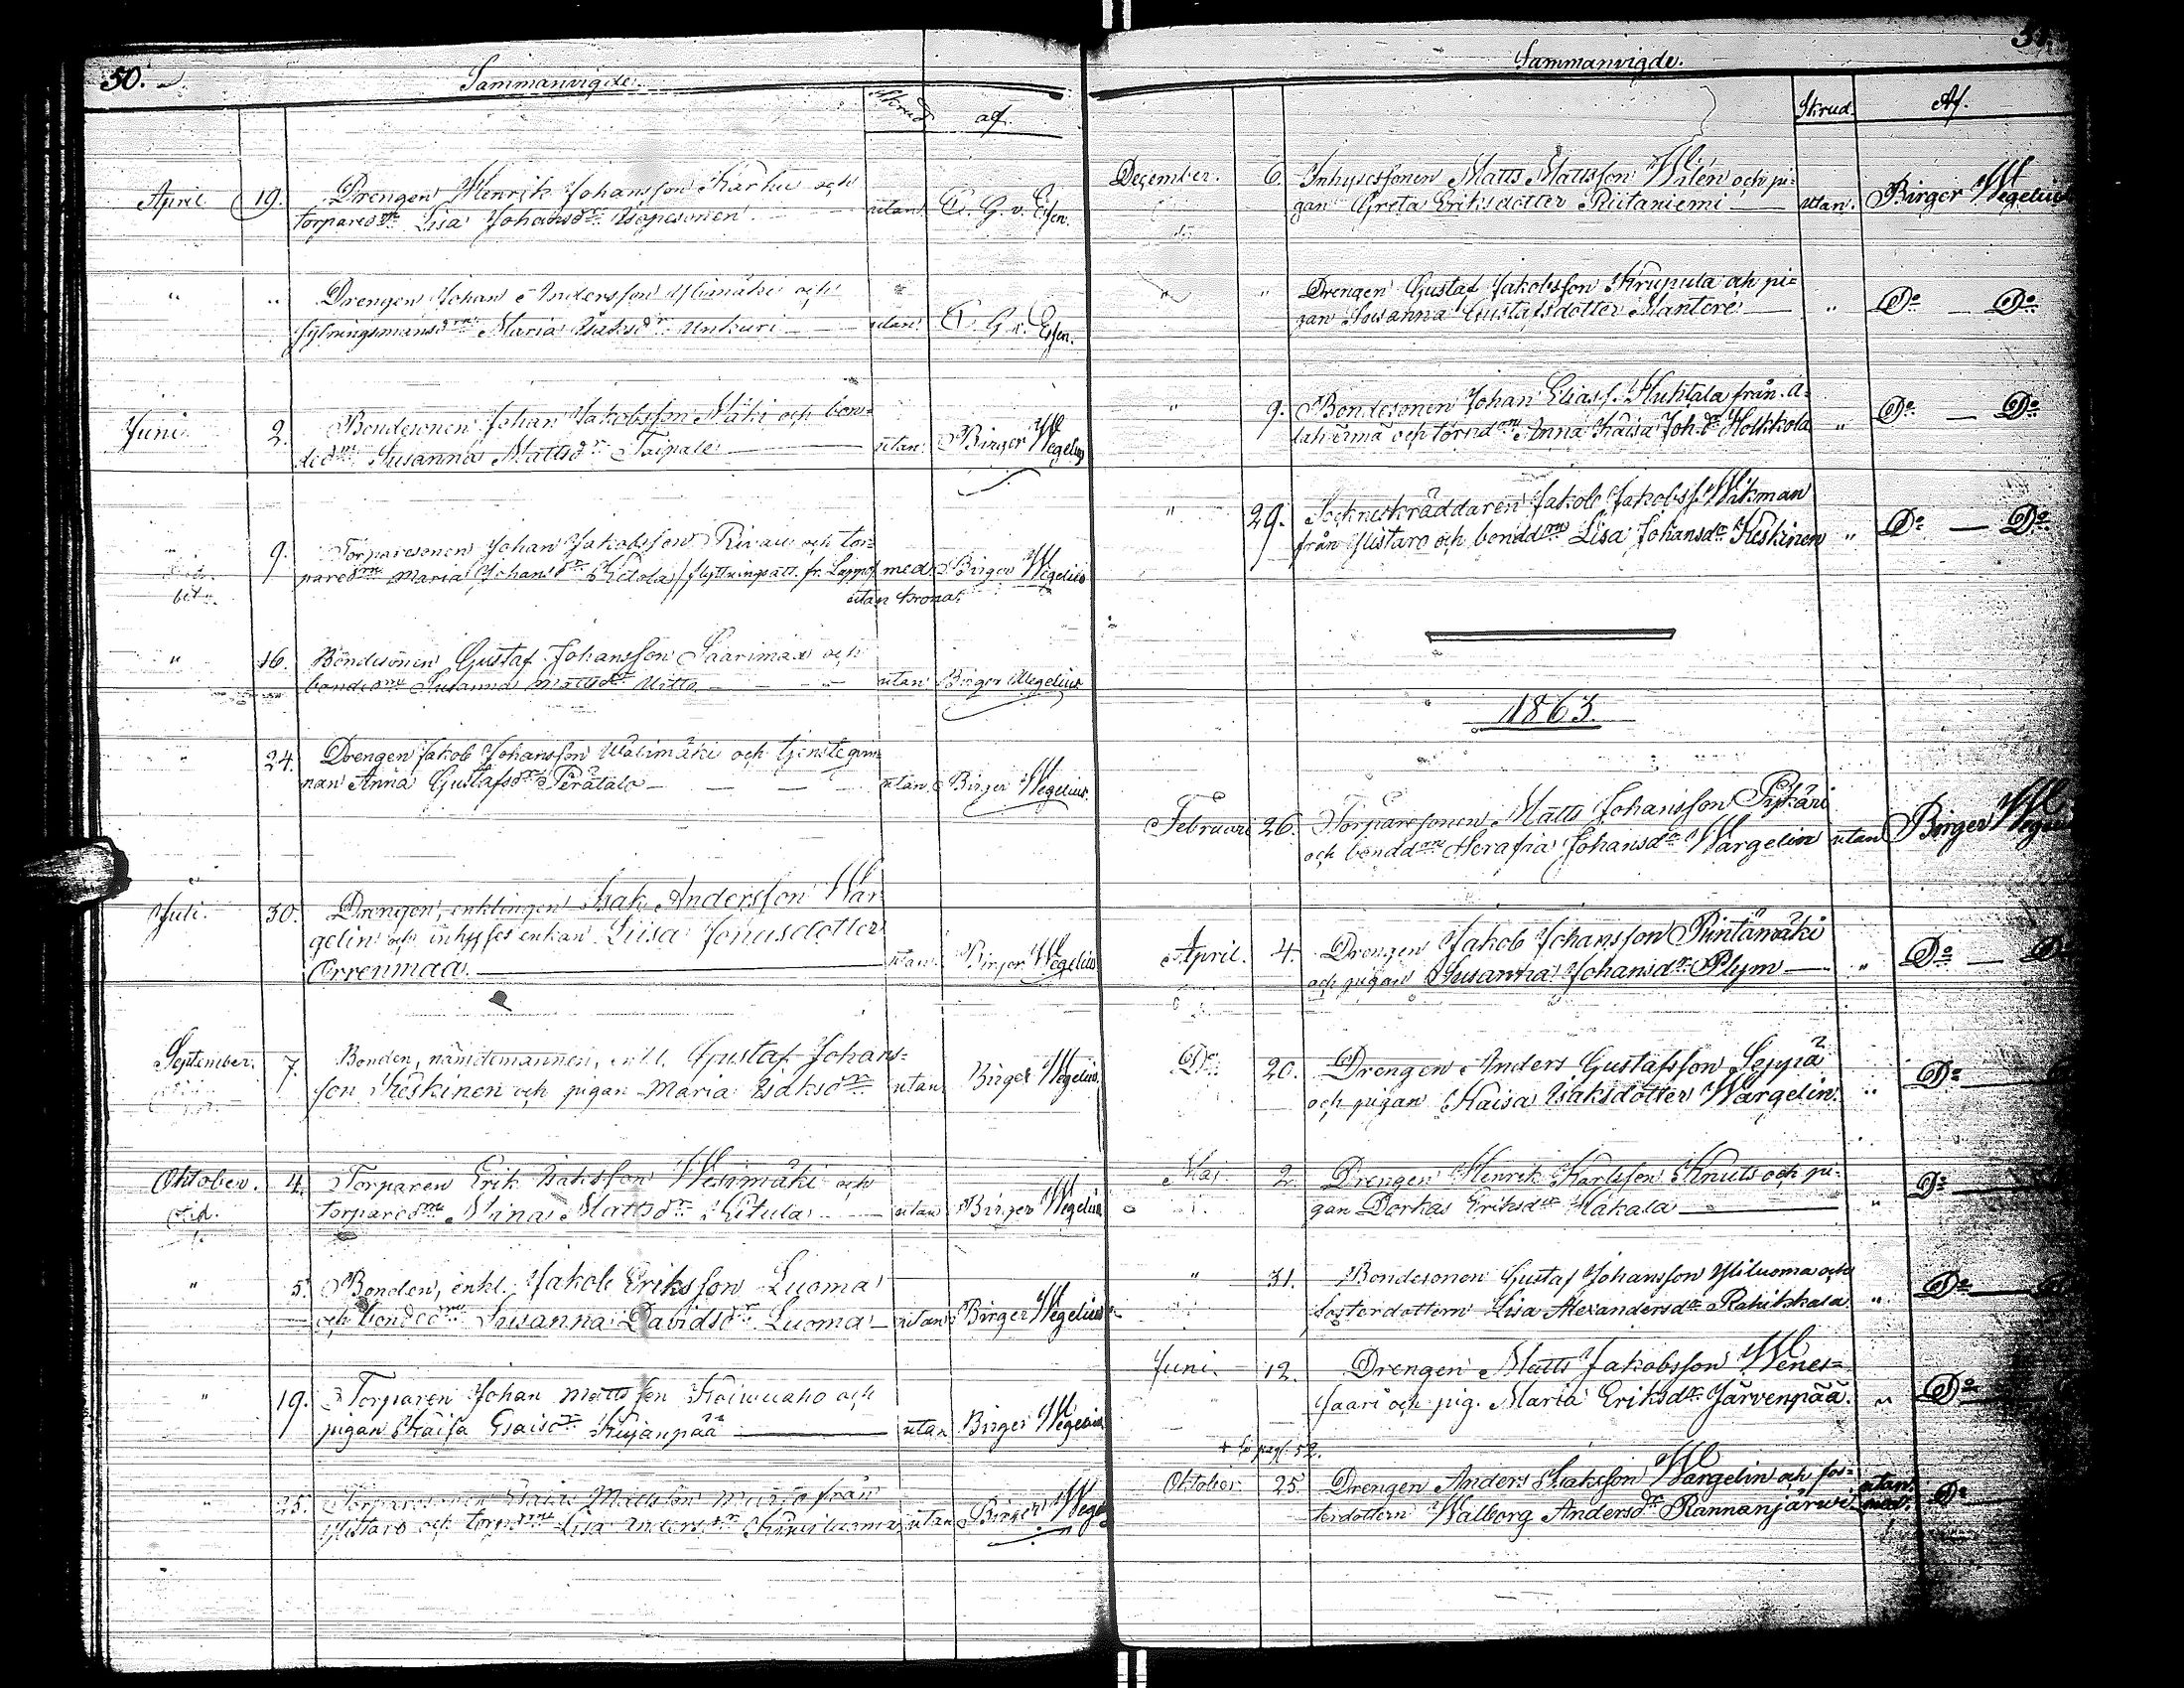 50.
Sammanvigde.
Skrud
af.
April 19. Drengen Henrik Johansson Karhu och
torpared:r Lisa Johansd:r utan C. G. v. Essen.
" " Drengen Johan Andersson Ylimäki och
sytningsmansd:rn Maria Isaksd:r Unkuri utan C. G. v. Essen.
Juni 2. Bondesonen Johan Jakobsson Mäki och bon-
ded:rn Susanna Mattsd:r Taipale utan Birger Wegelius
" 9. Torparesonen Johan Jakobsson och tor-
pared:rn Maria Johansd:r Ketola / flyttningsatt. fr. Lappo med Birger Wegelius
utan krona.
" 16. Bondesonen Gustaf Johansson Saarimaa och
bonded:rn Susanna Mattsd:r utan Birger Wegelius
" 24. Drengen Jakob Johansson Wälimäki och tjenstegvin-
nan Anna Gustafsd:r Perätalo utan Birger Wegelius.
Juli. 30. Drengen, enklingen Isak Andersson War-
gelin och inhyses enkan Liisa Jonasdotter
Orrenmaa. utan Birger Wegelius
September. 7. Bonden, nämdemannen, enkl. Gustaf Johans-
son Keskinen och pigan Maria Isaksd:r utan Birger Wegelius.
Oktober. 4. Torparen Erik Isaksson Wesimäki och
torpared:rn Mina Mattsd:r Ketula utan Birger Wegelius
" 5. Bonden, enkl. Jakob Eriksson Luoma
och bonded:rn Susanna Davidsd:r Luoma utan Birger Wegelius
" 19. Torparen Johan Mattsson Koivuaho och
pigan Kaisa Esaisd:r Kujanpää utan Birger Wegelius
" 25. Torparesonen Esaias Mattsson från
Ylistaro och torpd:rn Lisa Andersd:r utan Birger Wegelius
Sammanvigde.
Skrud. Af.
December. 6. Inhysessonen Matts Mattsson Wilén och pi-
gan Greta Eriksdotter Riitaniemi utan. Birger Wegelius
" " Drengen Gustaf Jakobsson Krupula och pi-
gan Susanna Gustafsdotter Mantere " D:o — D:o
" 9. Bondesonen Johan Eliass. Huhtala från A-
lahärmä och torpd:rn Anna Kaisa Joh.d:r Holkkola " D:o — D:o
" 29. Sockneskräddaren Jakob Jakobss. Wikman
från Ylistaro och bondd:rn Lisa Johansd:r Keskinen " D:o — D:o
1863.
Februari 26. Torparesonen Matts Johansson Pipkäri
och bondd:rn Serafia Johansd:r Wargelin utan Birger Wegelius
April. 4. Drengen Jakob Johansson Rintamäki
och pigan Susanna Johansd:r Plym " D:o — D:o
D:o 20. Drengen Anders Gustafsson Seppä
och pigan Kaisa Isaksdotter Wargelin. " D:o
Maj 2. Drengen Henrik Karlsson Knuts och pi-
gan Dorkas Eriksd:r Hakala " D:o
" 31. Bondesonen Gustaf Johansson Yliluoma och
fosterdottern Lisa Alexandersd:r Rahikkala " D:o
Juni 12. Drengen Matts Jakobsson Wenes-
saari och pig. Maria Eriksd:r Järvenpää. " D:o
+ se pag. 52.
Oktober 25. Drengen Anders Isaksson Wargelin och fos-
terdottern Walborg Andersd:r Rannanjärvi D:o